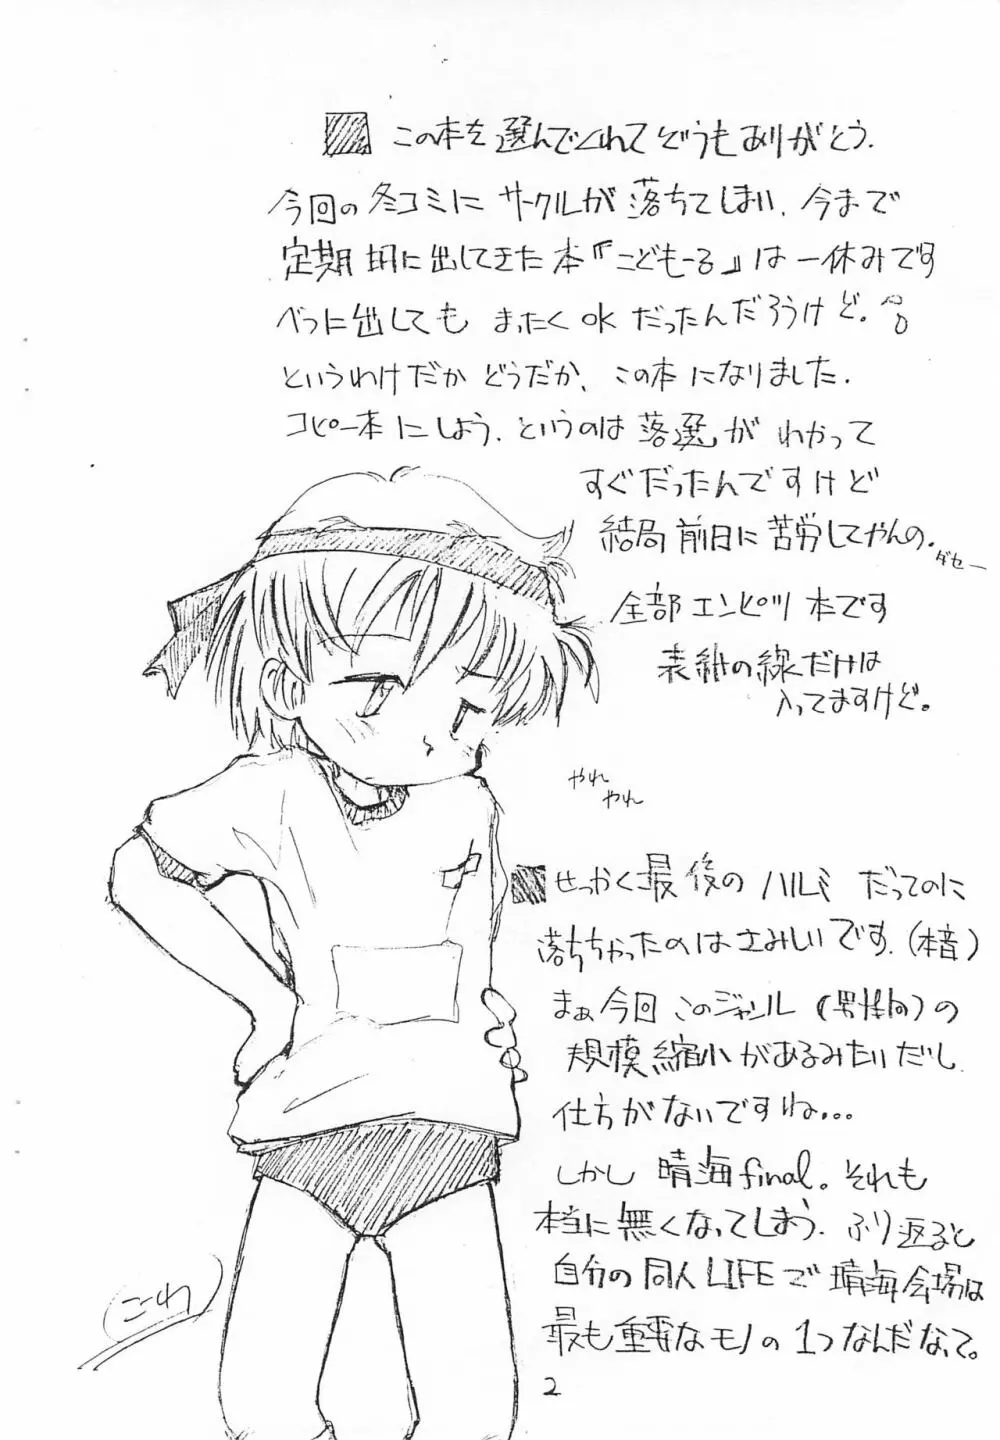 この本を選んでくれてどうもありがとう.
今回の冬コミにサークルが落ちてしまい.今まで
定期的に出してきた本『こどもーる』は一休みです
べつに出しても まったくOKだったんだろうけど。
というわけだか どうだか、この本になりました.
コピー本にしよう.というのは落選がわかって
すぐだったんですけど
結局前日に苦労してやんの.
ダセー
全部エンピツ本です
表紙の線だけは
入ってますけど。
やれ
やれ
せっかく最後のハルミだってのに
落ちちゃったのはさみしいです.(本音)
まぁ今回このジャンル(男性向)の
規模縮小があるみたいだし
仕方がないですね...
しかし晴海final。それも
本当に無くなってしまう.ふり返ると
自分の同人LIFEで晴海会場は
最も重要なモノの1つなんだなって。
こーわ
2